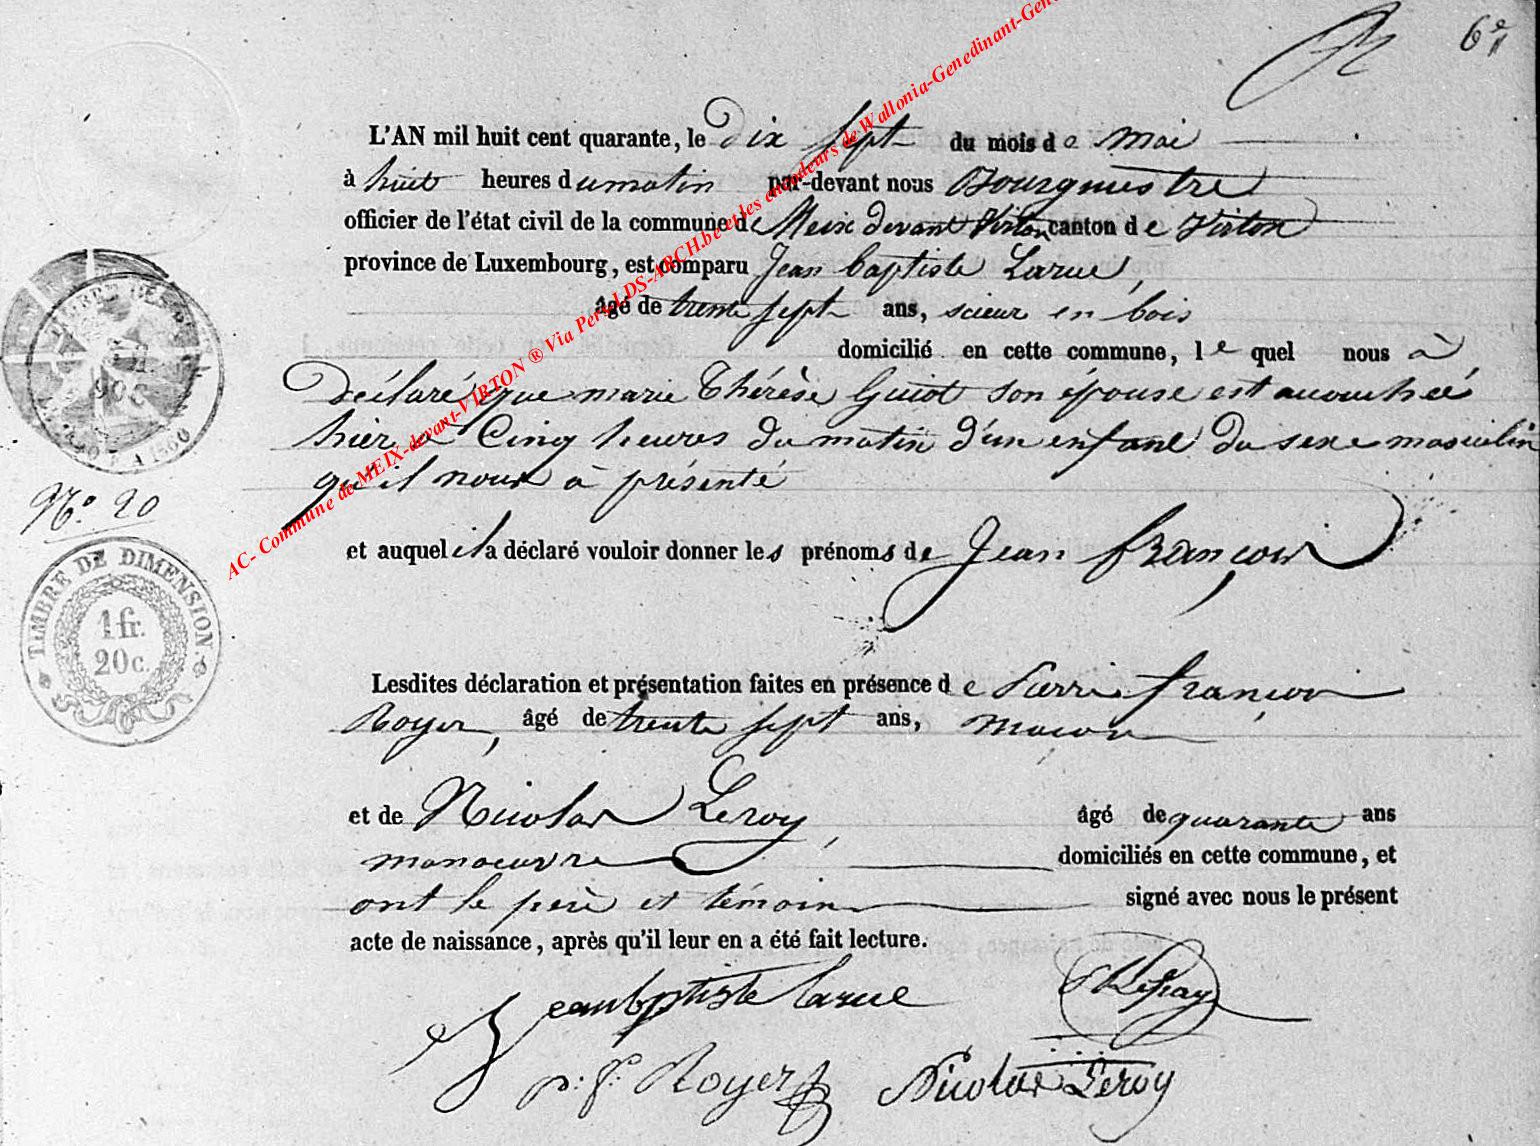 6e
L'AN mil huit cent quarante, le dix sept du mois de mai
à huit heures du matin par-devant nous Bourgmestre
officier de l'état civil de la commune de Meix devant Virton canton de Virton
province de Luxembourg, est comparu Jean Baptiste Larue,
âgé de trente sept ans, scieur en bois
domicilié en cette commune, le quel nous à
déclaré que marie Thérèse Guiot son épouse est accouchée
hier à Cinq heures du matin d'un enfant du sexe masculin
qu'il nous à présenté
Nº. 20
et auquel il a déclaré vouloir donner les prénoms de Jean françois
TIMBRE DE DIMENSION.
1 fr.
20 c.
Lesdites déclaration et présentation faites en présence de Pierre françois
Royer, âgé de trente sept ans, macon
et de Nicolas Leroy, âgé de quarante ans
manoeuvre domiciliés en cette commune, et
ont le père et témoins signé avec nous le présent
acte de naissance, après qu'il leur en a été fait lecture.
Jean baptiste larue
p: f: Royer Nicolas Leroy
AC- Commune de MEIX-devant-VIRTON ® Via Pers-LDS-ARCH.be et les encodeurs de Wallonia-Genedinant-Gen